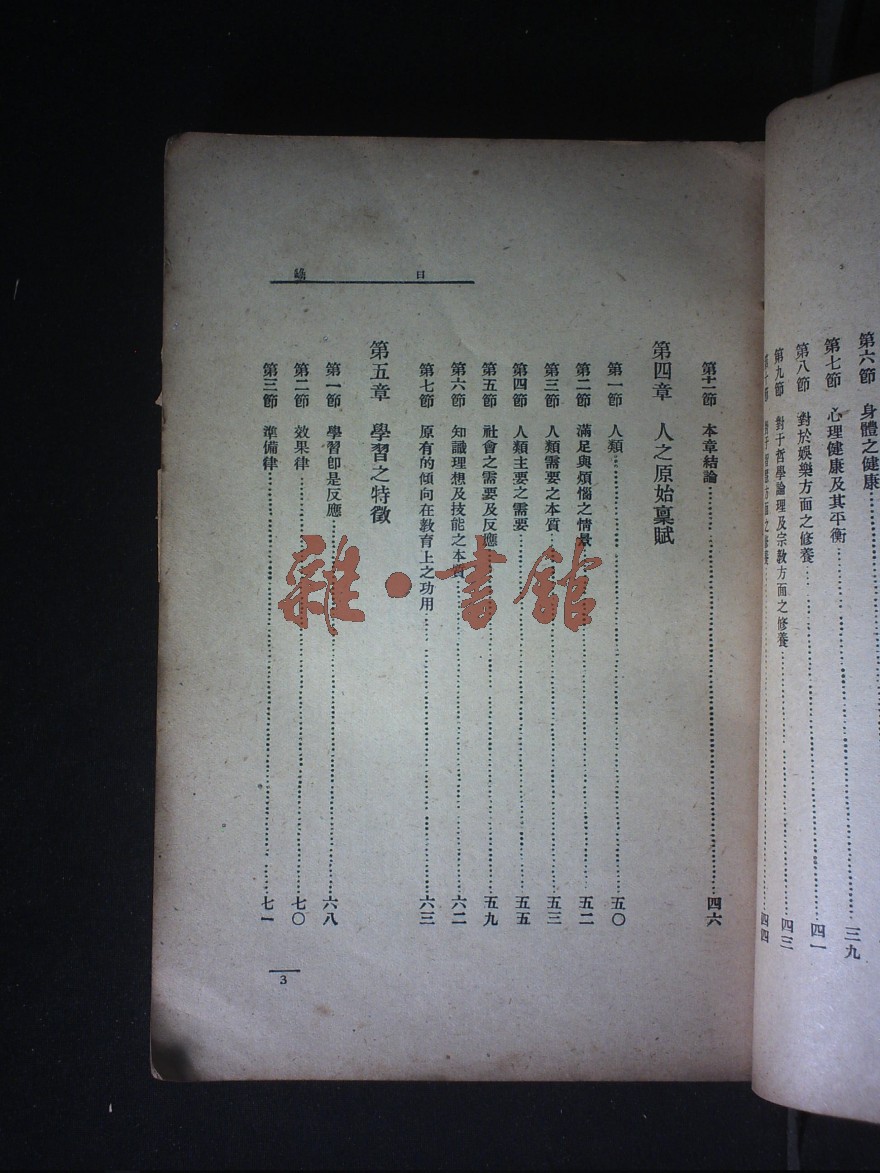 第六節 身體之健康
第七節 心理健康及其平衡……三九
第八節 對於娛樂方面之修養……四一
第九節 對于哲學論理及宗教方面之修養……四三
四四
目錄
第十一節 本章結論……四六
第四章 人之原始稟賦
第一節 人類……五〇
第二節 滿足與煩惱之情景……五二
第三節 人類需要之本質……五三
第四節 人類主要之需要……五五
第五節 社會之需要及反應……五九
第六節 知識理想及技能之本質……六二
第七節 原有的傾向在教育上之功用……六三
第五章 學習之特徵
第一節 學習卽是反應……六八
第二節 效果律……七〇
第三節 準備律……七一
3
雜·書館